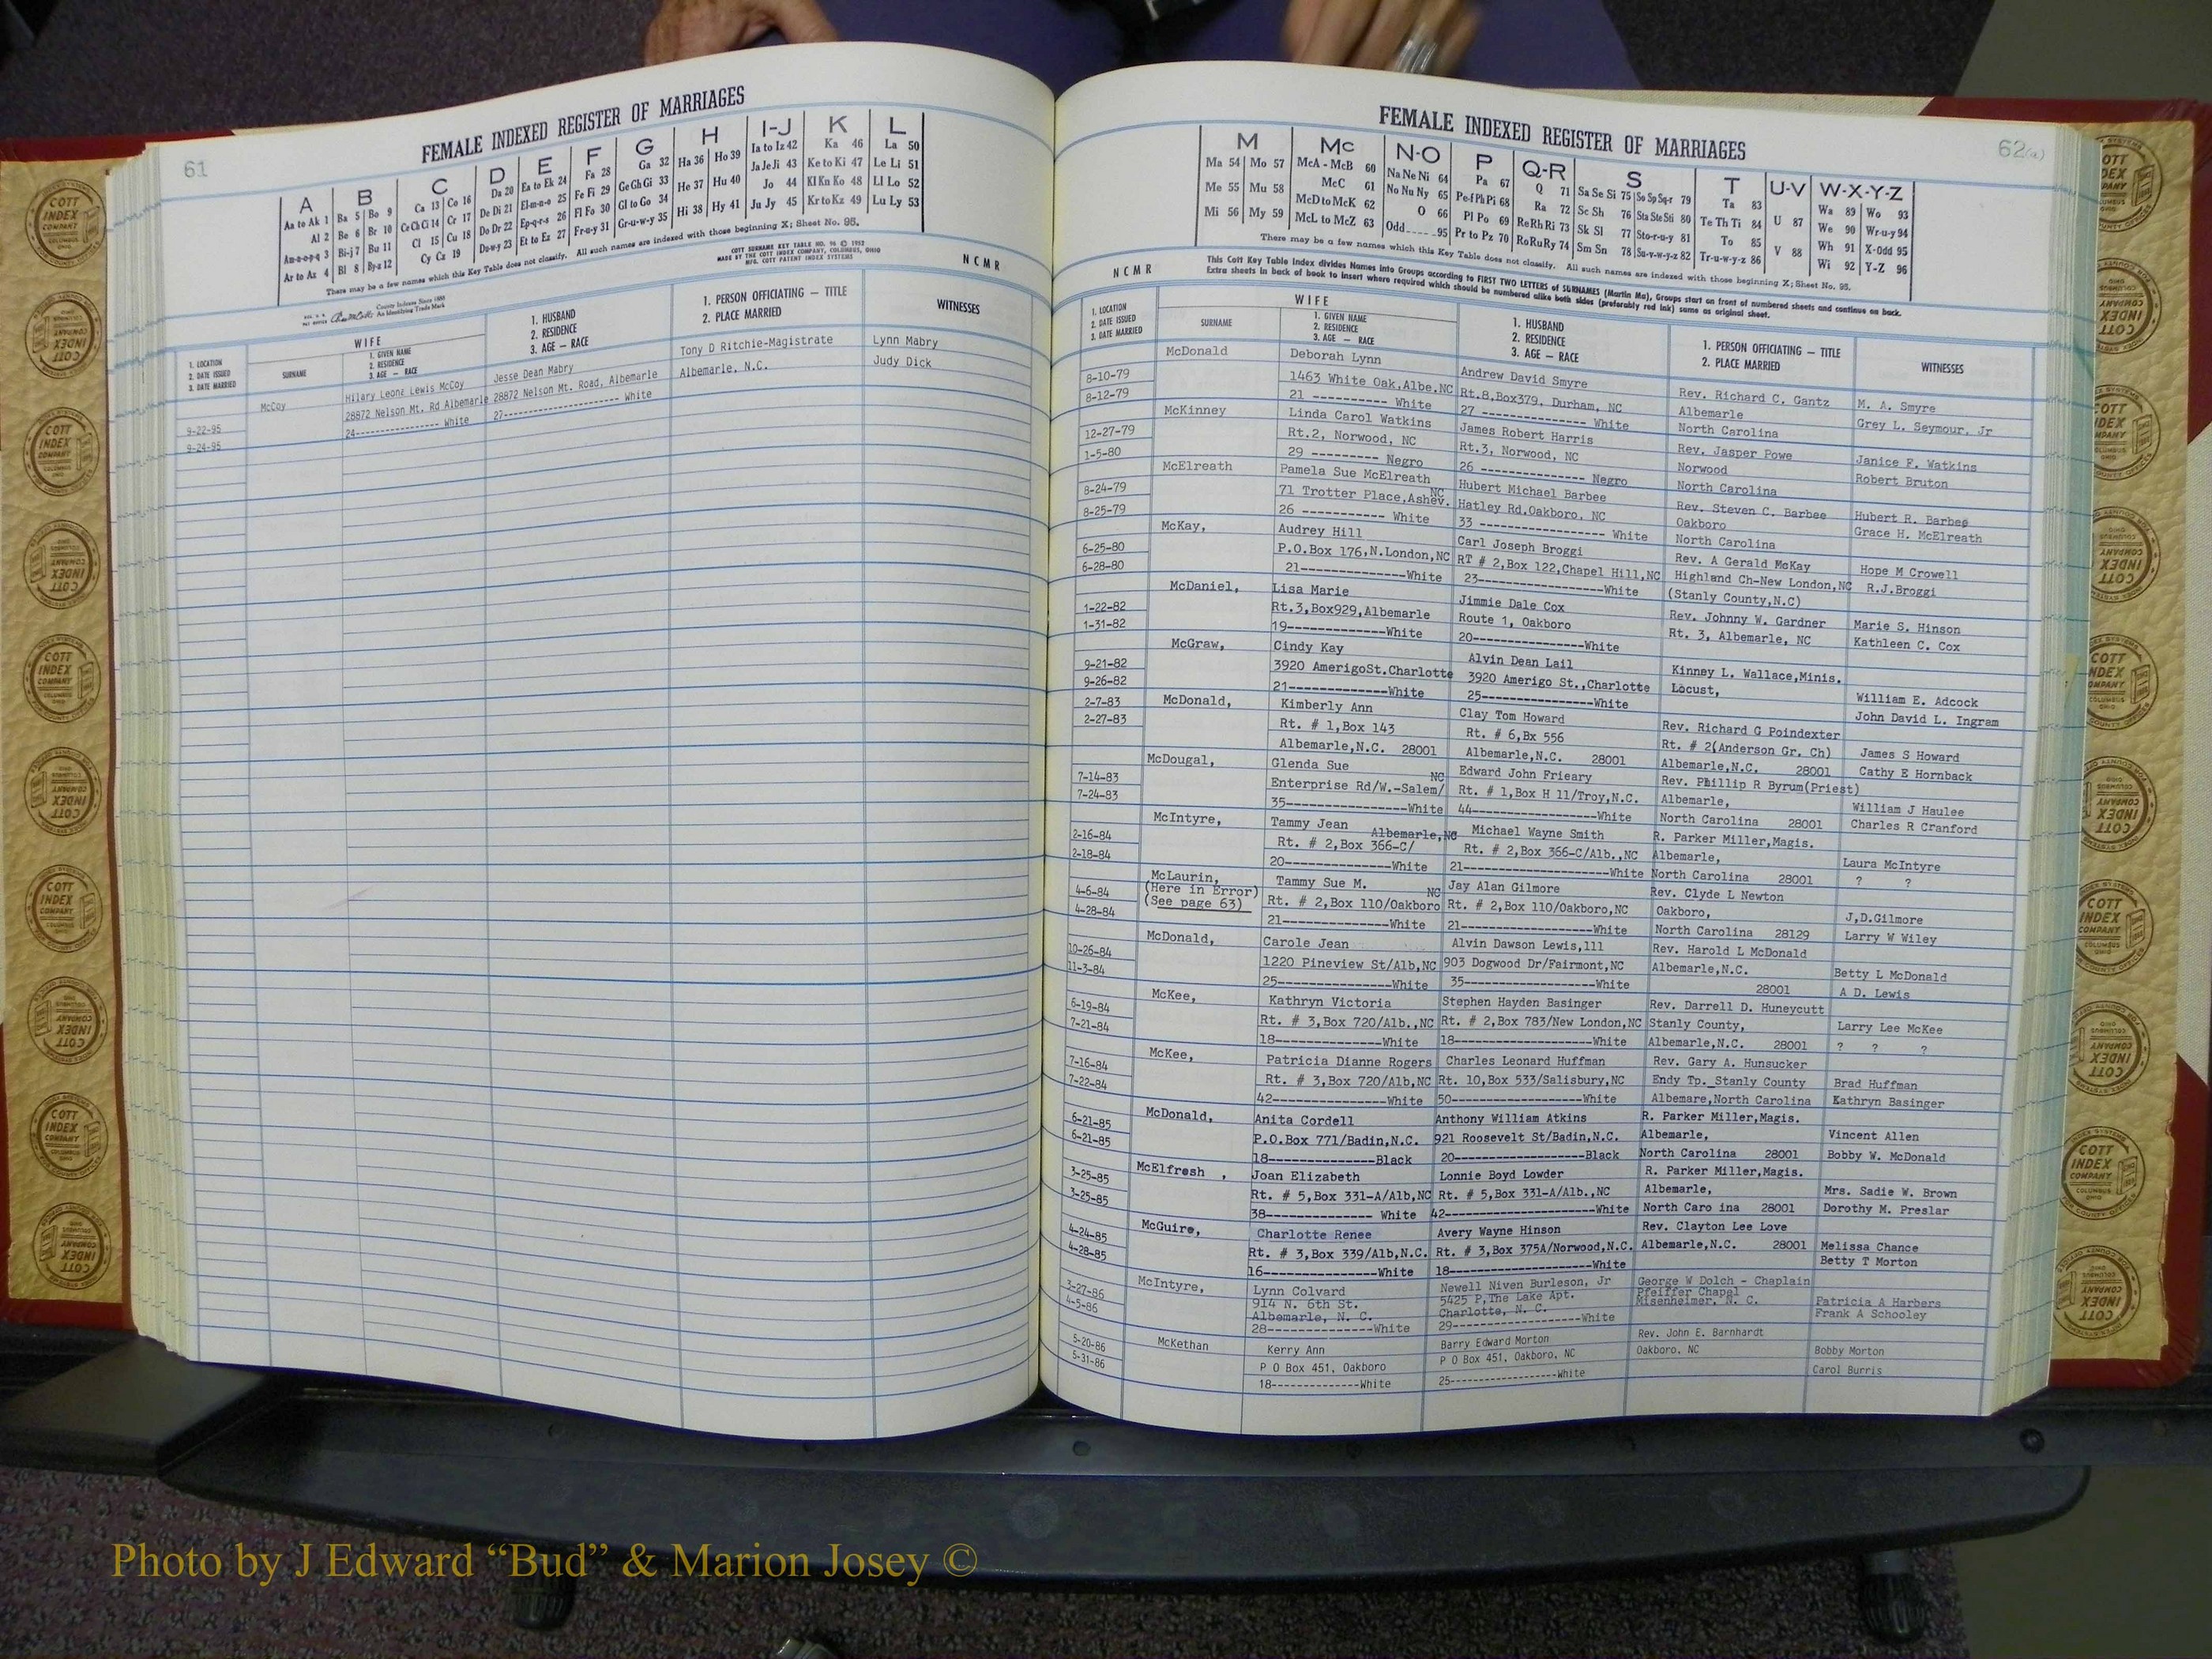 61
FEMALE INDEXED REGISTER OF MARRIAGES
A B C D E F G H I-J K L
Aa to Ak 1 Ba 5 Bo 9 Ca 13 Co 16 Da 20 Ea to Ek 24 Fa 28 Ga 32 Ha 36 Ho 39 Ia to Iz 42 Ka 46 La 50
Al 2 Be 6 Br 10 Ce Ch Ci 14 Cr 17 De Di 21 El-m-n-o 25 Fe Fi 29 Ge Gh Gi 33 He 37 Hu 40 Ja Je Ji 43 Ke to Ki 47 Le Li 51
Am-n-o-p-q 3 Bi-j 7 Bu 11 Cl 15 Cu 18 Do Dr 22 Ep-q-r-s 26 Fl Fo 30 Gl to Go 34 Hi 38 Hy 41 Jo 44 Kl Kn Ko 48 Ll Lo 52
Ar to Az 4 Bl 8 By-z 12 Cy Cz 19 Du-w-y 23 Et to Ez 27 Fr-u-y 31 Gr-u-w-y 35 Ju Jy 45 Kr to Kz 49 Lu Ly 53
There may be a few names which this Key Table does not classify. All such names are indexed with those beginning X; Sheet No. 95.
COTT SURNAME KEY TABLE NO. 96 © 1952
MADE BY THE COTT INDEX COMPANY, COLUMBUS, OHIO
MFG. COTT PATENT INDEX SYSTEMS
N C M R
County Indexes Since 1888
An Identifying Trade Mark
1. LOCATION
2. DATE ISSUED
3. DATE MARRIED
WIFE
SURNAME
1. GIVEN NAME
2. RESIDENCE
3. AGE — RACE
1. HUSBAND
2. RESIDENCE
3. AGE — RACE
1. PERSON OFFICIATING — TITLE
2. PLACE MARRIED
WITNESSES
McCoy Hilary Leona Lewis McCoy Jesse Dean Mabry Tony D Ritchie-Magistrate Lynn Mabry
9-22-95 28872 Nelson Mt. Rd Albemarle 28872 Nelson Mt. Road, Albemarle Albemarle, N.C. Judy Dick
9-24-95 24------------------ White 27-------------------- White
62(a)
FEMALE INDEXED REGISTER OF MARRIAGES
M Mc N-O P Q-R S T U-V W-X-Y-Z
Ma 54 Mo 57 McA - McB 60 Na Ne Ni 64 Pa 67 Q 71 Sa Se Si 75 So Sp Sq-r 79 Ta 83 U 87 Wa 89 Wo 93
Me 55 Mu 58 McC 61 No Nu Ny 65 Pe-f Ph Pi 68 Ra 72 Sc Sh 76 Sta Ste Sti 80 Te Th Ti 84 V 88 We 90 Wr-u-y 94
Mi 56 My 59 McD to McK 62 O 66 Pl Po 69 Re Rh Ri 73 Sk Sl 77 Sto-r-u-y 81 To 85 Wh 91 X-Odd 95
McL to McZ 63 Odd 95 Pr to Pz 70 Ro Ru Ry 74 Sm Sn 78 Su-v-w-y-z 82 Tr-u-w-y-z 86 Wi 92 Y-Z 96
There may be a few names which this Key Table does not classify. All such names are indexed with those beginning X; Sheet No. 95.
N C M R
This Cott Key Table Index divides Names into Groups according to FIRST TWO LETTERS of SURNAMES (Martin Ma), Groups start on front of numbered sheets and continue on back.
Extra sheets in back of book to insert where required which should be numbered alike both sides (preferably red ink) same as original sheet.
1. LOCATION
2. DATE ISSUED
3. DATE MARRIED
WIFE
SURNAME
1. GIVEN NAME
2. RESIDENCE
3. AGE — RACE
1. HUSBAND
2. RESIDENCE
3. AGE — RACE
1. PERSON OFFICIATING — TITLE
2. PLACE MARRIED
WITNESSES
McDonald Deborah Lynn Andrew David Smyre Rev. Richard C. Gantz M. A. Smyre
8-10-79 1463 White Oak,Albe.NC Rt.8,Box379, Durham, NC Albemarle Grey L. Seymour, Jr
8-12-79 21 ---------- White 27 ------------ White North Carolina
McKinney Linda Carol Watkins James Robert Harris Rev. Jasper Powe Janice F. Watkins
12-27-79 Rt.2, Norwood, NC Rt.3, Norwood, NC Norwood Robert Bruton
1-5-80 29 --------- Negro 26 ------------- Negro North Carolina
McElreath Pamela Sue McElreath Hubert Michael Barbee Rev. Steven C. Barbee Hubert R. Barbee
8-24-79 71 Trotter Place,Ashev. NC Hatley Rd.Oakboro, NC Oakboro Grace H. McElreath
8-25-79 26 ----------- White 33 --------------- White North Carolina
McKay, Audrey Hill Carl Joseph Broggi Rev. A Gerald McKay Hope M Crowell
6-25-80 P.O.Box 176,N.London,NC RT # 2,Box 122,Chapel Hill,NC Highland Ch-New London,NC R.J.Broggi
6-28-80 21--------------White 23------------------White (Stanly County,N.C)
McDaniel, Lisa Marie Jimmie Dale Cox Rev. Johnny W. Gardner Marie S. Hinson
1-22-82 Rt.3,Box929,Albemarle Route 1, Oakboro Rt. 3, Albemarle, NC Kathleen C. Cox
1-31-82 19-------------White 20---------------White
McGraw, Cindy Kay Alvin Dean Lail Kinney L. Wallace,Minis. William E. Adcock
9-21-82 3920 AmerigoSt.Charlotte 3920 Amerigo St.,Charlotte Locust, John David L. Ingram
9-26-82 21-------------White 25--------------White
McDonald, Kimberly Ann Clay Tom Howard Rev. Richard G Poindexter James S Howard
2-7-83 Rt. # 1,Box 143 Rt. # 6,Bx 556 Rt. # 2(Anderson Gr. Ch) Cathy E Hornback
2-27-83 Albemarle,N.C. 28001 Albemarle,N.C. 28001 Albemarle,N.C. 28001
McDougal, Glenda Sue Edward John Frieary Rev. Phillip R Byrum(Priest) William J Haulee
7-14-83 Enterprise Rd/W.-Salem/ NC Rt. # 1,Box H 11/Troy,N.C. Albemarle, Charles R Cranford
7-24-83 35----------------White 44-----------------White North Carolina 28001
McIntyre, Tammy Jean Michael Wayne Smith R. Parker Miller,Magis. Laura McIntyre
2-16-84 Rt. # 2,Box 366-C/ Albemarle,NC Rt. # 2,Box 366-C/Alb.,NC Albemarle, ? ?
2-18-84 20--------------White 21-------------------White North Carolina 28001
McLaurin, Tammy Sue M. Jay Alan Gilmore Rev. Clyde L Newton J,D.Gilmore
4-6-84 (Here in Error) Rt. # 2,Box 110/Oakboro NC Rt. # 2,Box 110/Oakboro,NC Oakboro, Larry W Wiley
4-28-84 (See page 63) 21---------------White 21-----------------White North Carolina 28129
McDonald, Carole Jean Alvin Dawson Lewis,111 Rev. Harold L McDonald Betty L McDonald
10-26-84 1220 Pineview St/Alb,NC 903 Dogwood Dr/Fairmont,NC Albemarle,N.C. A D. Lewis
11-3-84 25----------------White 35-----------------White 28001
McKee, Kathryn Victoria Stephen Hayden Basinger Rev. Darrell D. Huneycutt Larry Lee McKee
6-19-84 Rt. # 3,Box 720/Alb.,NC Rt. # 2,Box 783/New London,NC Stanly County, ? ? ?
7-21-84 18--------------White 18------------------White Albemarle,N.C. 28001
McKee, Patricia Dianne Rogers Charles Leonard Huffman Rev. Gary A. Hunsucker Brad Huffman
7-16-84 Rt. # 3,Box 720/Alb,NC Rt. 10,Box 533/Salisbury,NC Endy Tp._Stanly County Kathryn Basinger
7-22-84 42---------------White 50-----------------White Albemare,North Carolina
McDonald, Anita Cordell Anthony William Atkins R. Parker Miller,Magis. Vincent Allen
6-21-85 P.O.Box 771/Badin,N.C. 921 Roosevelt St/Badin,N.C. Albemarle, Bobby W. McDonald
6-21-85 18--------------Black 20-----------------Black North Carolina 28001
McElfresh , Joan Elizabeth Lonnie Boyd Lowder R. Parker Miller,Magis. Mrs. Sadie W. Brown
3-25-85 Rt. # 5,Box 331-A/Alb,NC Rt. # 5,Box 331-A/Alb.,NC Albemarle, Dorothy M. Preslar
3-25-85 38-------------- White 42--------------------White North Caro ina 28001
McGuire, Charlotte Renee Avery Wayne Hinson Rev. Clayton Lee Love Melissa Chance
4-24-85 Rt. # 3,Box 339/Alb,N.C. Rt. # 3,Box 375A/Norwood,N.C. Albemarle,N.C. 28001 Betty T Morton
4-28-85 16----------------White 18------------------White
McIntyre, Lynn Colvard Newell Niven Burleson, Jr George W Dolch - Chaplain Patricia A Harbers
3-27-86 914 N. 6th St. 5425 P,The Lake Apt. Pfeiffer Chapel Frank A Schooley
4-5-86 Albemarle, N. C. Charlotte, N. C. Misenheimer, N. C.
28---------------White 29-----------------White
McKethan Kerry Ann Barry Edward Morton Rev. John E. Barnhardt Bobby Morton
5-20-86 P O Box 451, Oakboro P O Box 451, Oakboro, NC Oakboro, NC Carol Burris
5-31-86 18--------------White 25------------------White
COTT INDEX COMPANY COLUMBUS OHIO
Photo by J Edward “Bud” & Marion Josey ©